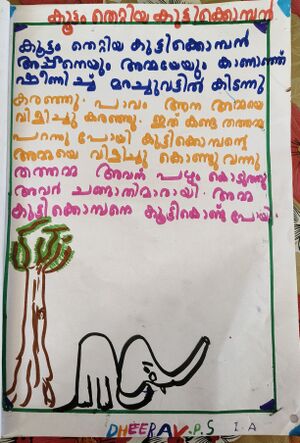 കൂട്ടം തെറ്റിയ കുട്ടിക്കൊമ്പൻ
കൂട്ടം തെറ്റിയ കുട്ടിക്കൊമ്പൻ
അച്ഛനെയും അമ്മയേയും കാണാഞ്ഞ്
ക്ഷീണിച്ച് മരച്ചുവട്ടിൽ കിടന്നു
കരഞ്ഞു. പാവം ആന അമ്മയെ
വിളിച്ചു കരഞ്ഞു. ഇത് കണ്ട തത്തമ്മ
പറന്നു പോയി കുട്ടിക്കൊമ്പന്റെ
അമ്മയെ വിളിച്ചു കൊണ്ടുവന്നു
തത്തമ്മ അവന് പഴം കൊടുത്തു
അവർ ചങ്ങാതിമാരായി. അമ്മ
കുട്ടിക്കൊമ്പനെ കൂട്ടികൊണ്ട് പോയി.
DHEERAV.P.S I.A